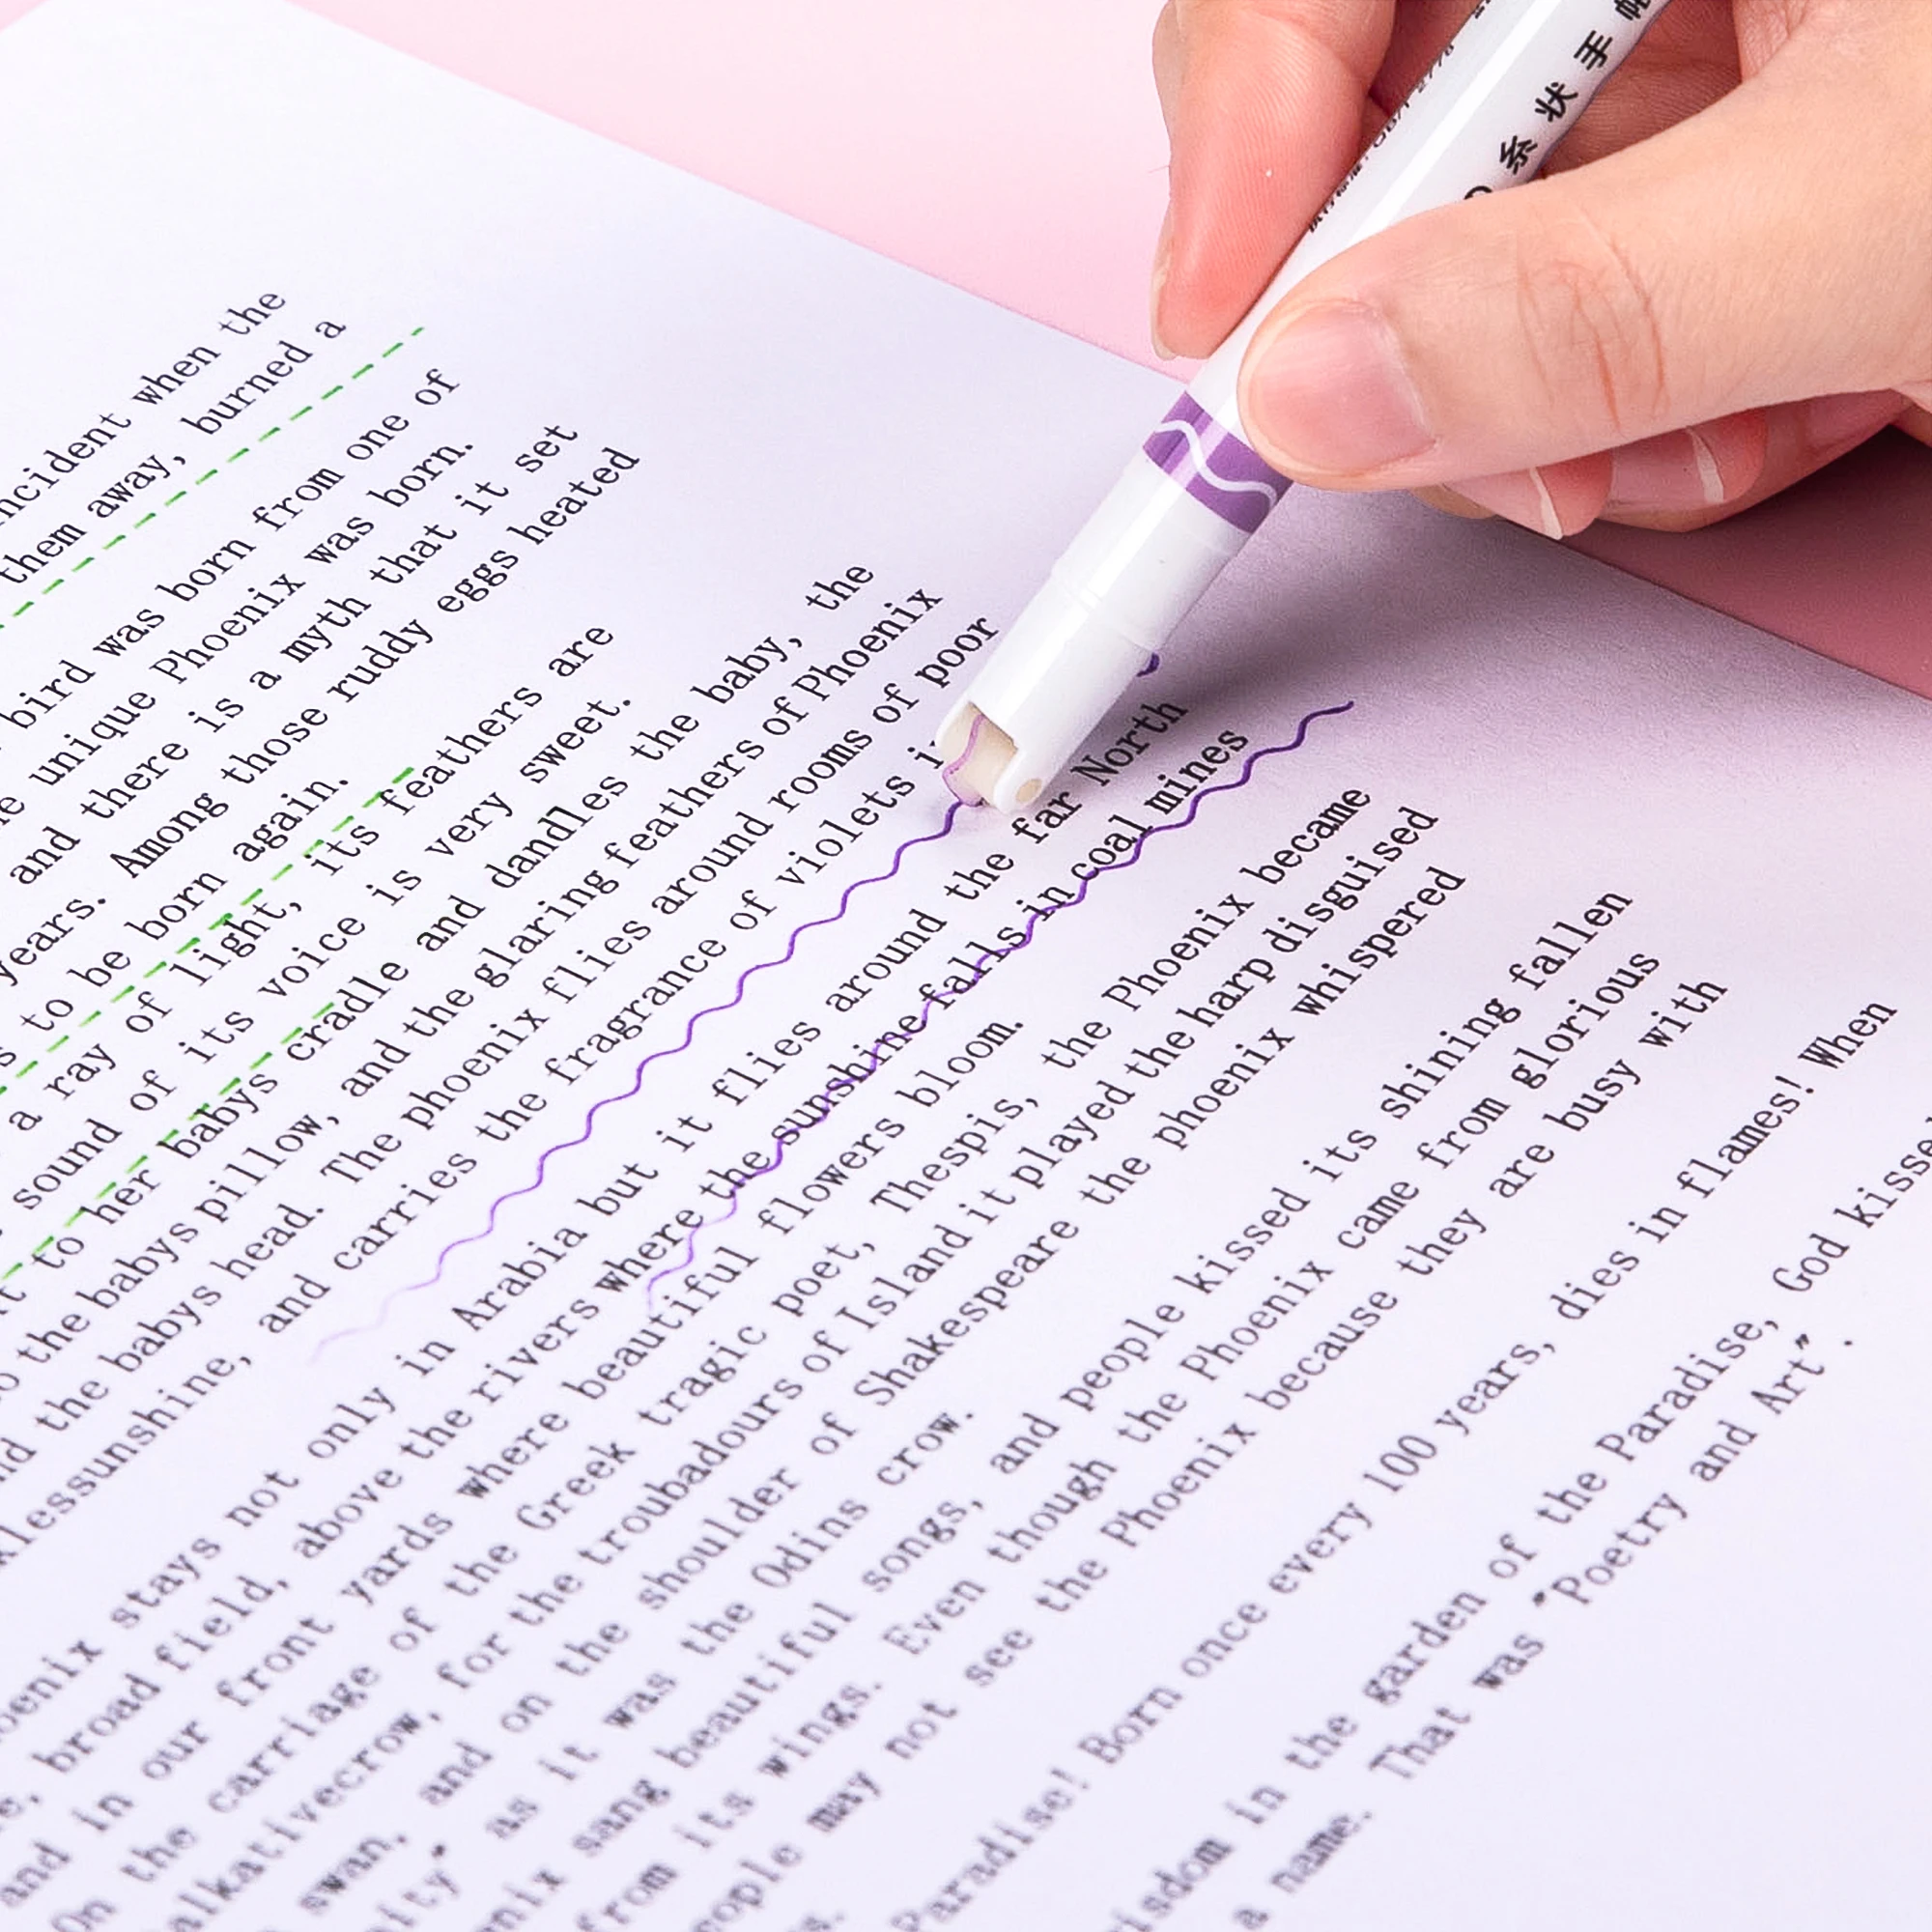 糸状手帐
incident when the
them away, burned a
bird was born from one of
unique Phoenix was born.
and there is a myth that it set
years. Among those ruddy eggs heated
to be born again.
a ray of light, its feathers are
sound of its voice is very sweet.
to her babys cradle and dandles the baby, the
the babys pillow, and the glaring feathers of Phoenix
the babys head. The phoenix flies around rooms of poor
klessunshine, and carries the fragrance of violets i
oenix stays not only in Arabia but it flies around the far North
broad field, above the rivers where the sunshine falls in coal mines
and in our front yards where beautiful flowers bloom.
On the carriage of the Greek tragic poet, Thespis, the Phoenix became
alkativecrow, for the troubadours of Island it played the harp disguised
swan, and on the shoulder of Shakespeare the phoenix whispered
nity" as it was the Odins crow.
enix sang beautiful songs, and people kissed its shining fallen
from its wings. Even though the Phoenix came from glorious
eople may not see the Phoenix because they are busy with
Paradise! Born once every 100 years, dies in flames! When
isdom in the garden of the Paradise, God kisse
a name. That was "Poetry and Art".